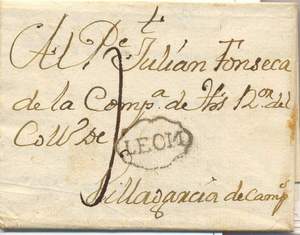 Al Pe. Julián Fonseca
de la Compa. de Jhs
del
Colo. De
LEOM
Villagarcia de Camps